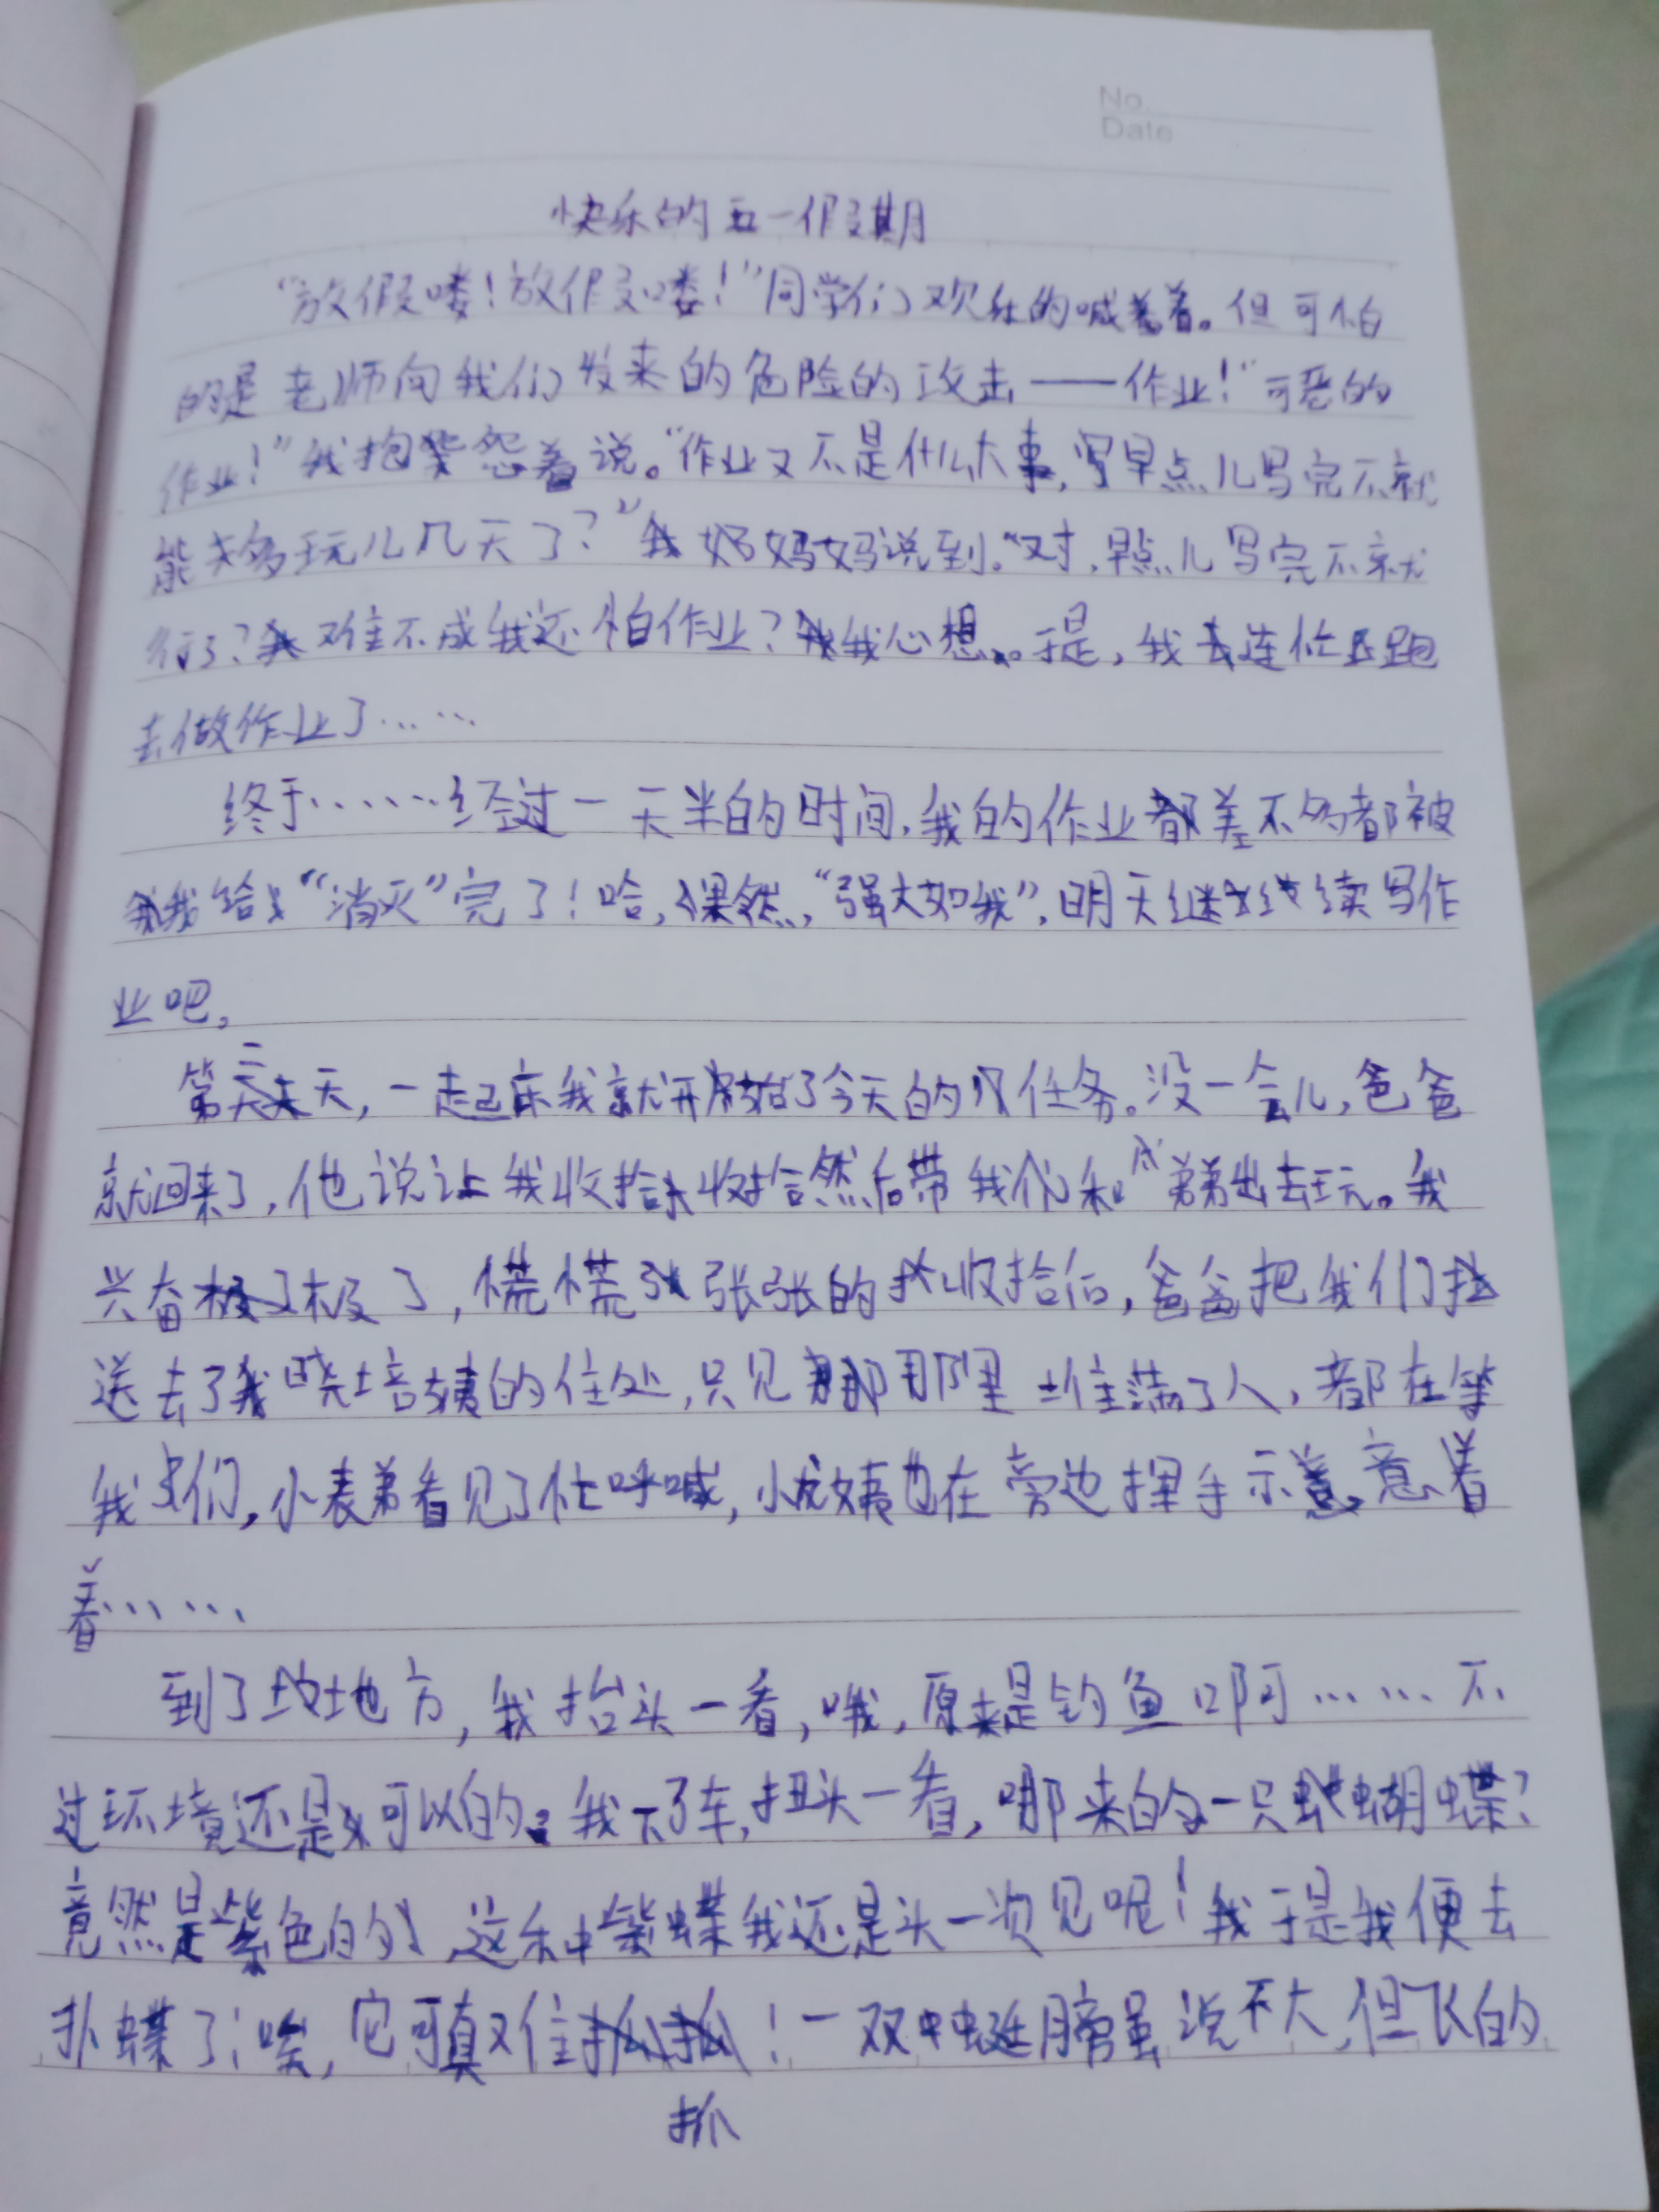 No.
Date
快乐的五一假期
“放假喽！放假喽！”同学们欢乐的喊着。但可怕
的是老师向我们发来的危险的攻击——作业！“可恶的
作业！”我抱怨着说。“作业又不是什么大事，写早点儿写完不就
能多玩儿几天了？”我妈妈说到。“对，早点儿写完不就
行了？难不成我还怕作业？我心想。于是，我连忙跑
去做作业了……
终于……经过一天半的时间，我的作业差不多都被
我给“消灭”完了！哈，果然，“强大如我”，明天继续写作
业吧，
第二天，一起床我就开始了今天的任务。没一会儿，爸爸
就回来了，他说让我收拾收拾然后带我和弟弟出去玩。我
兴奋极了，慌慌张张的收拾后，爸爸把我们
送去了我晓培姨的住处，只见那里住满了人，都在等
我们，小表弟看见了忙呼喊，小龙姨也在旁边挥手示意着
着……
到了地方，我抬头一看，哦，原来是钓鱼啊……不
过环境还是可以的。我下了车，扭头一看，哪来的一只蝴蝶？
竟然是紫色的，这种紫蝶我还是头一次见呢！于是我便去
扑蝶了；唉，它可真难抓！一双翅膀虽说不大，但飞的
抓